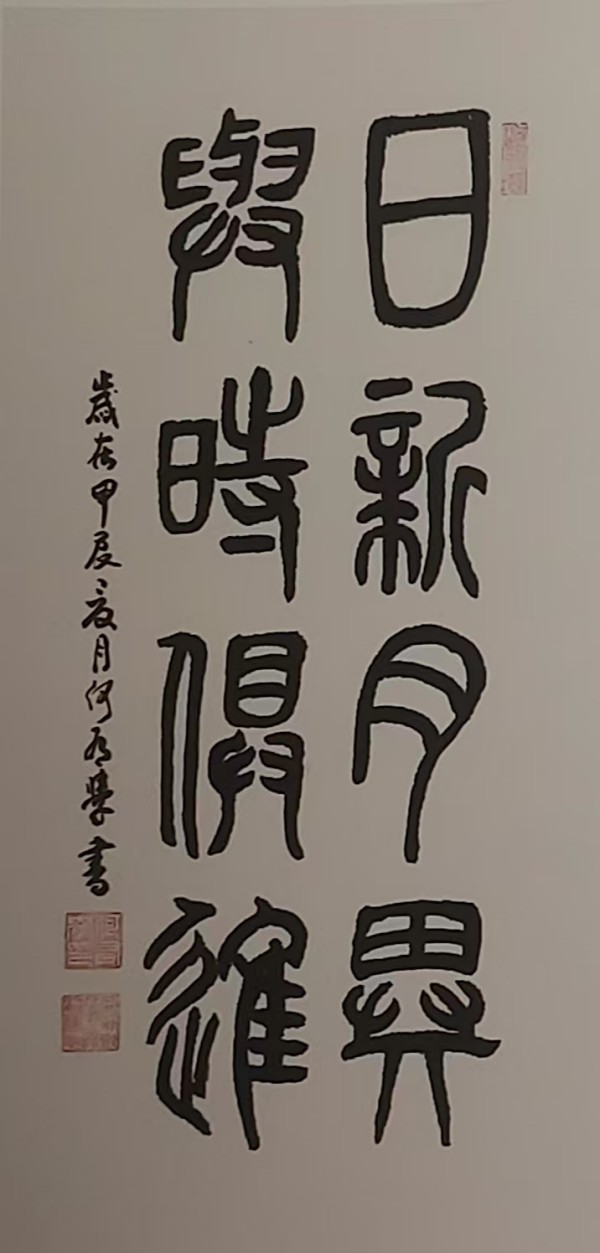 日新月異
與時俱進
歲在甲辰夏月何乃學書